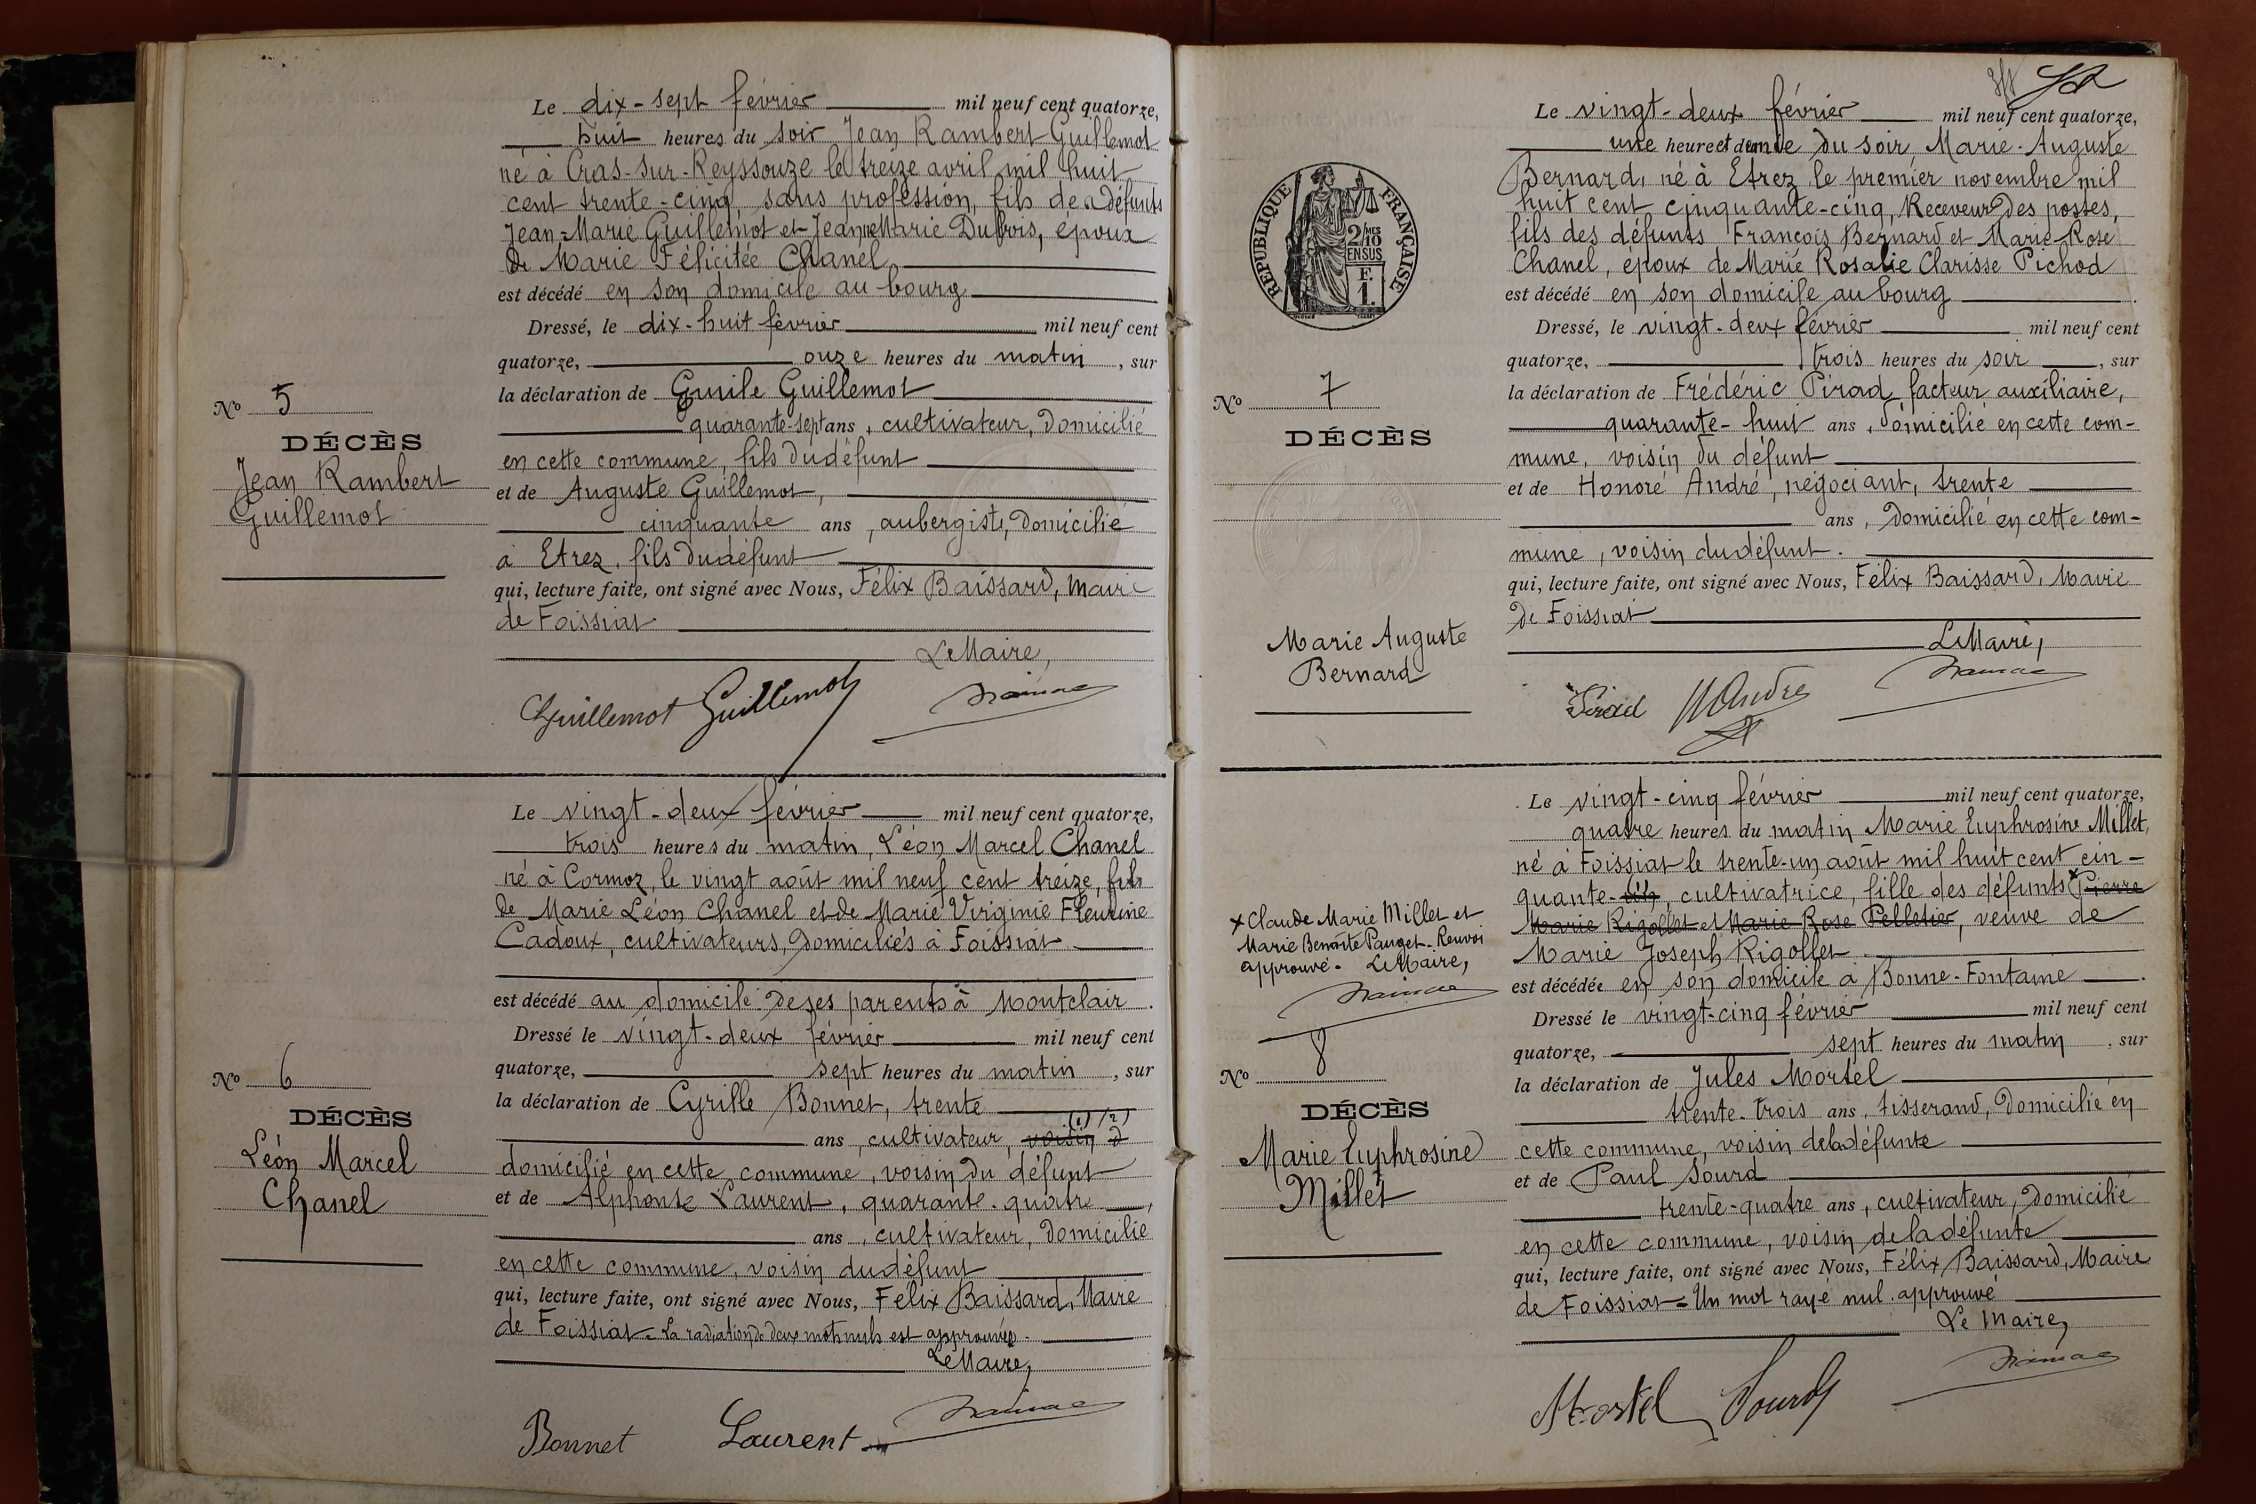 Le dix-sept février mil neuf cent quatorze,
huit heures du soir Jean Rambert Guillemot
né à Cras-sur-Reyssouze le treize avril mil huit
cent trente-cinq sans profession, fils de défunts
Jean-Marie Guillemot et Jeanne Marie Dubois, époux
de Marie Félicitée Chanel
est décédé en son domicile au bourg
Dressé, le dix-huit février mil neuf cent
quatorze, onze heures du matin, sur
la déclaration de Guillemot
quarante-sept ans, cultivateur, domicilié
en cette commune, fils du défunt
et de Auguste Guillemot,
cinquante ans, aubergiste, domicilié
à Etrez, fils du défunt
qui, lecture faite, ont signé avec Nous, Félix Baissard, Maire
de Foissiat
Le Maire,
Guillemot Guillemot
No 5
DÉCÈS
Jean Rambert
Guillemot
Le vingt-deux février mil neuf cent quatorze,
trois heures du matin, Léon Marcel Chanel
né à Cormoz, le vingt août mil neuf cent treize, fils
de Marie Léon Chanel et de Marie Virginie Fleurine
Cadoux, cultivateurs, domiciliés à Foissiat
est décédé au domicile de ses parents à Montclair.
Dressé le vingt-deux février mil neuf cent
quatorze, sept heures du matin, sur
la déclaration de Cyrille Bonnet, trente
(1) (2)
ans, cultivateur, voisin d
domicilié en cette commune, voisin du défunt
et de Alphonse Laurent, quarante-quatre,
ans, cultivateur, domicilié
en cette commune, voisin du défunt
qui, lecture faite, ont signé avec Nous, Félix Baissard, Maire
de Foissiat. La radiation de deux mots nuls est approuvée.
Le Maire,
Bonnet Laurent
No 6
DÉCÈS
Léon Marcel
Chanel
Le vingt-deux février mil neuf cent quatorze,
une heure et demie du soir, Marie-Auguste
Bernard, né à Etrez le premier novembre mil
huit cent cinquante-cinq, Receveur des postes,
fils des défunts François Bernard et Marie-Rose
Chanel, époux de Marie Rosalie Clarisse Pichod
est décédé en son domicile au bourg
Dressé, le vingt-deux février mil neuf cent
quatorze, trois heures du soir, sur
la déclaration de Frédéric Pirad, facteur auxiliaire,
quarante-huit ans, domicilié en cette com-
mune, voisin du défunt
et de Honoré André, négociant, trente
ans, domicilié en cette com-
mune, voisin du défunt.
qui, lecture faite, ont signé avec Nous, Félix Baissard, Maire
de Foissiat
Le Maire,
Pirad HAndré
RÉPUBLIQUE FRANÇAISE
2/10 MES
EN SUS
F.
1.
No 7
DÉCÈS
Marie Auguste
Bernard
Le vingt-cinq février mil neuf cent quatorze,
quatre heures du matin Marie Euphrosine Millet,
né à Foissiat le trente-un août mil huit cent cin-
quante-, cultivatrice, fille des défunts x Pierre
Marie Rigollet et Marie Rose Pelletier, veuve de
Marie Joseph Rigollet
est décédée en son domicile à Bonne-Fontaine.
Dressé le vingt-cinq février mil neuf cent
quatorze, sept heures du matin, sur
la déclaration de Jules Mortel
trente-trois ans, tisserand, domicilié en
cette commune, voisin de la défunte
et de Paul Sourd
trente-quatre ans, cultivateur, domicilié
en cette commune, voisin de la défunte
qui, lecture faite, ont signé avec Nous, Félix Baissard, Maire
de Foissiat = Un mot rayé nul. approuvé
Le Maire,
Mortel Sourd
x Claude Marie Millet et
Marie Benoite Pauget. Renvoi
approuvé. Le Maire,
No 8
DÉCÈS
Marie Euphrosine
Millet